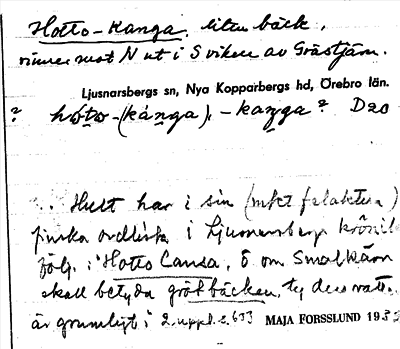 Hotto-kanga, liten bäck,
rinner mot N ut i S viken av Gråstjärn.
Ljusnarsbergs sn, Nya Kopparbergs hd, Örebro län.
? håto-(kánga), -kanga? D20
Hult har i sin (mkt felaktiga)
finska ordlista i Ljusnarsbergs krönik
följ. i "Hotto Cansa, ö om Smalkärn
skall betyda grötbäcken, ty dess vatt
är grumligt" 2 uppl. s. 633 MAJA FORSSLUND 193